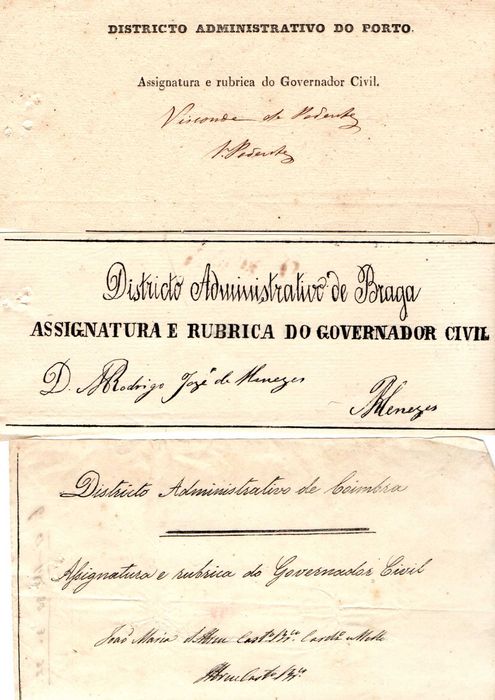 DISTRICTO ADMINISTRATIVO DO PORTO.
Assignatura e rubrica do Governador Civil.
Visconde de Podentes
V. Podentes
Districto Administrativo de Braga
ASSIGNATURA E RUBRICA DO GOVERNADOR CIVIL
D. Rodrigo José de Menezes
Menezes
Districto Administrativo de Coimbra
Assignatura e rubrica do Governador Civil
João Maria d'Abreu Castº Brº Cardº e Mello
Abreu Castº Brº